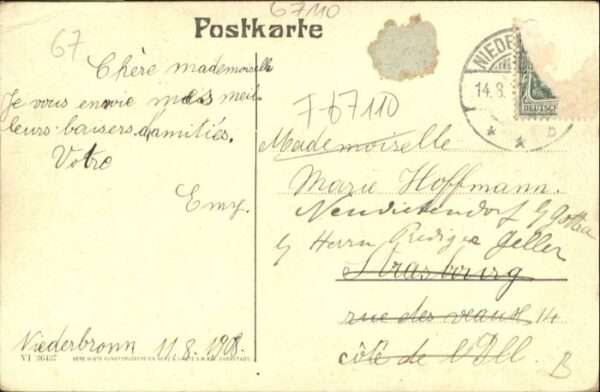 67110
Postkarte
67
Chère mademoiselle
Je vous envoie mes meil
leurs baisers d'amitiés.
Votre
Emy.
Niederbronn 11.8.1908.
VI 30437
NIEDE
14.8.
DEUTSCH
F-67110
Mademoiselle
Marie Hoffmann.
Neudietendorf b/ Gotha
b/ Herrn Prediger Geller
Strasbourg
rue des veaux 14
côté de l'Ill.
B